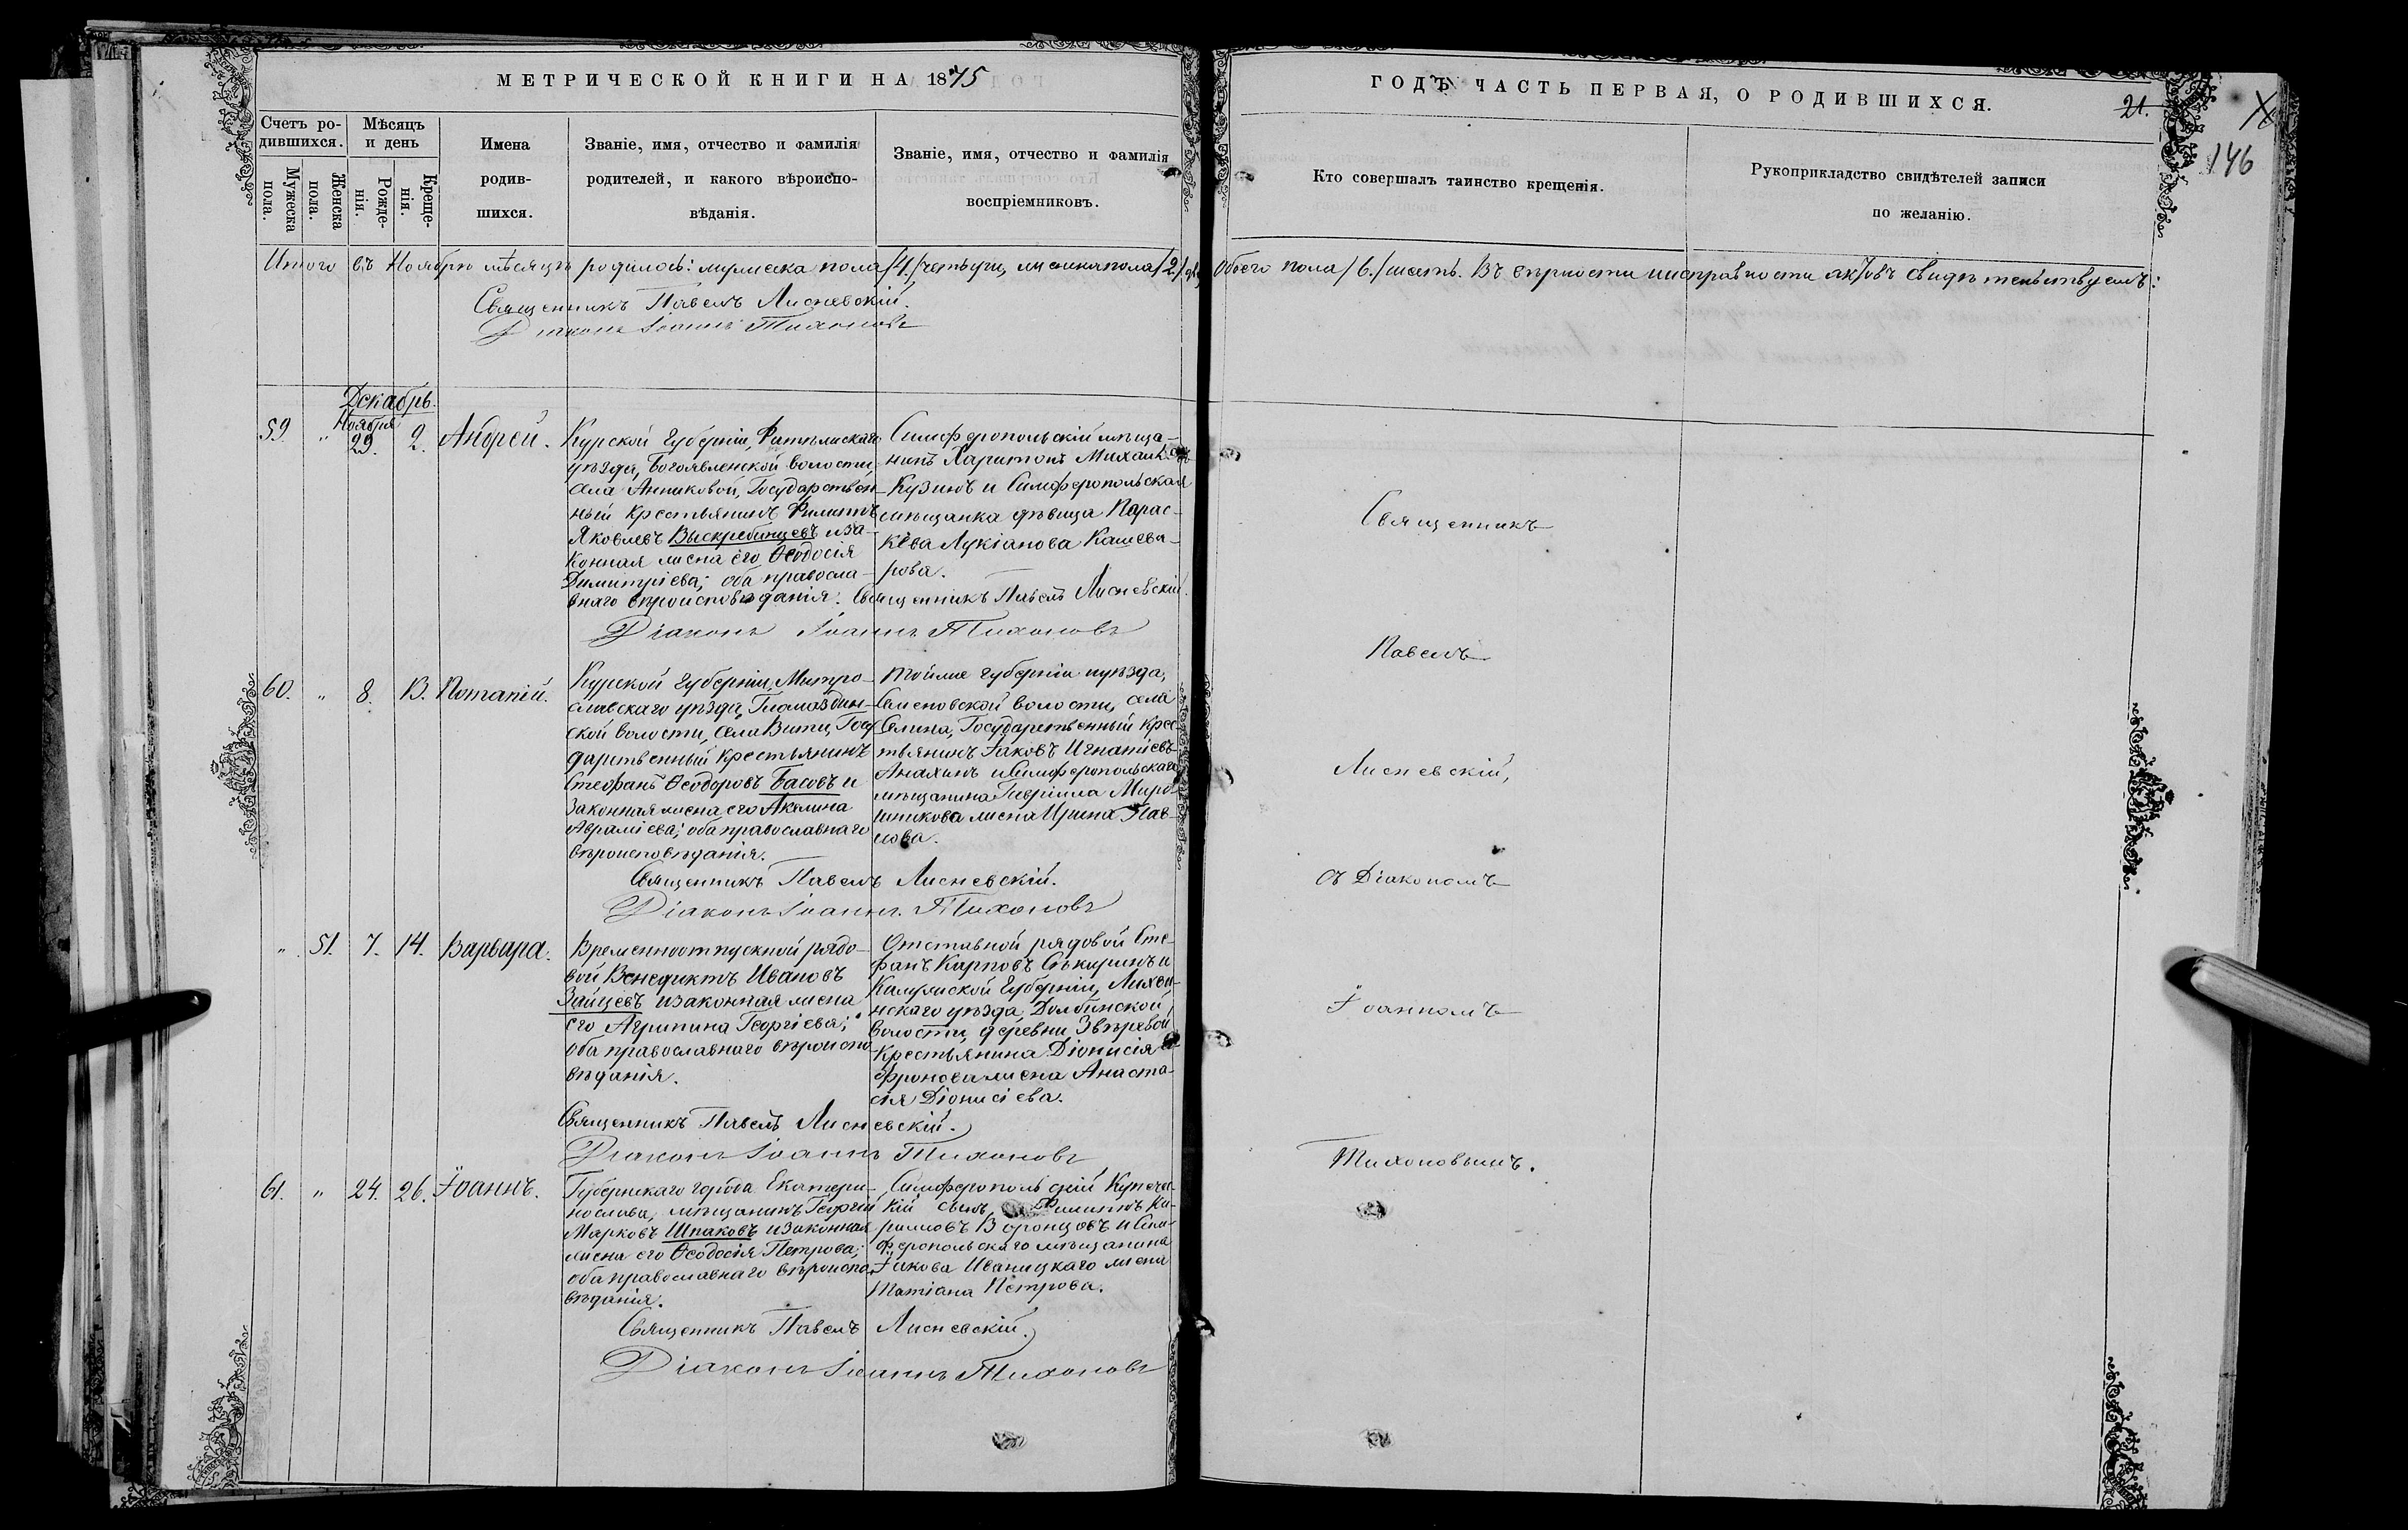 МЕТРИЧЕСКОЙ КНИГИ НА 1875
ГОДЪ ЧАСТЬ ПЕРВАЯ, О РОДИВШИХСЯ.
21.
146
Счетъ ро-
дившихся.
Мужеска
пола.
Женска
пола.
Мѣсяцъ
и день
Рожде-
нія.
Креще-
нія.
Имена
родив-
шихся.
Званіе, имя, отчество и фамилія
родителей, и какого вѣроиспо-
вѣданія.
Званіе, имя, отчество и фамилія
воспріемниковъ.
Кто совершалъ таинство крещенія.
Рукоприкладство свидѣтелей записи
по желанію.
Итого въ Ноябрѣ мѣсяцѣ родилось: мужеска пола /4./ четыре, женска пола /2./ Обоего пола /6./ шесть. Въ вѣрности и исправности актовъ свидѣтельствуемъ:
Священникъ Павелъ Лисневскій.
Діаконъ Іоаннъ Тихоновъ
Декабрь.
59. " Ноября 29. 2. Андрей.
Курской Губерніи, Фатѣжскаго
уѣзда, Богоявленской волости,
села Анниковой, Государствен-
ный крестьянинъ Филиппъ
Яковлевъ Выскребинцевъ и за-
конная жена его Ѳеодосія
Димитріева; оба правосла-
внаго вѣроисповѣданія.
Симферопольскій мѣща-
нинъ Харитонъ Михаиловъ
Кузинъ и Симферопольская
мѣщанка дѣвица Парас-
кева Лукіанова Кашева-
рова.
Священникъ Павелъ Лисневскій.
Діаконъ Іоаннъ Тихоновъ
60. " 8. 13. Потапій.
Курской Губерніи, Митро-
славскаго уѣзда, Гламаздин-
ской волости, села Витиц, Госу
дарственный крестьянинъ
Стефанъ Ѳеодоровъ Басовъ и
законная жена его Акилина
Авраміева; оба православнаго
вѣроисповѣданія.
Той же губерніи и уѣзда,
Семеновской волости, села
Селина, Государственный крес-
тьянинъ Іаковъ Игнатіевъ
Анахинъ и Симферопольскаго
мѣщанина Гавріила Миро-
шникова жена Ирина Пав-
лова.
Священникъ Павелъ Лисневскій.
Діаконъ Іоаннъ Тихоновъ
" 51. 7. 14. Варвара.
Временноотпускной рядо-
вой Венедиктъ Ивановъ
Зайцевъ и законная жена
его Агрипина Георгіева;
оба православнаго вѣроиспо-
вѣданія.
Отставной рядовой Сте-
фанъ Карповъ Сѣкиринъ и
Калужской Губерніи, Лихви-
нскаго уѣзда, Долбинской
волости, деревни Звѣревой
крестьянина Діонисія
Офронова жена Анаста-
сія Діонисіева.
Священникъ Павелъ Лисневскій.
Діаконъ Іоаннъ Тихоновъ
61. " 24. 26. Іоаннъ.
Губернскаго города Екатери-
нослава, мѣщанинъ Георгій
Марковъ Шпаковъ и законная
жена его Ѳеодосія Петрова;
оба православнаго вѣроиспо-
вѣданія.
Симферопольскій Купече-
кій сынъ Филиппъ Ки-
риловъ Воронцовъ и Сим-
феропольскаго мѣщанина
Іакова Иваницкаго жена
Татіана Петрова.
Священникъ Павелъ Лисневскій.
Діаконъ Іоаннъ Тихоновъ
Священникъ
Павелъ
Лисневскій,
съ Діакономъ
Іоанномъ
Тихоновымъ.